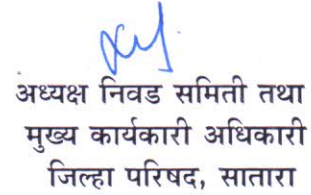 अध्यक्ष निवड समिती तथा
मुख्य कार्यकारी अधिकारी
जिल्हा परिषद, सातारा